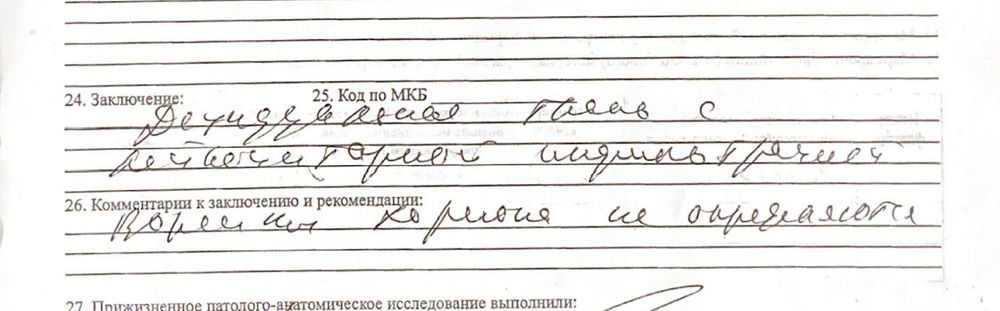 24. Заключение: 25. Код по МКБ
Децидуальная ткань с
лейкоцитарной инфильтрацией
26. Комментарии к заключению и рекомендации:
Ворсины хориона не определяются
27. Прижизненное патолого-анатомическое исследование выполнили: